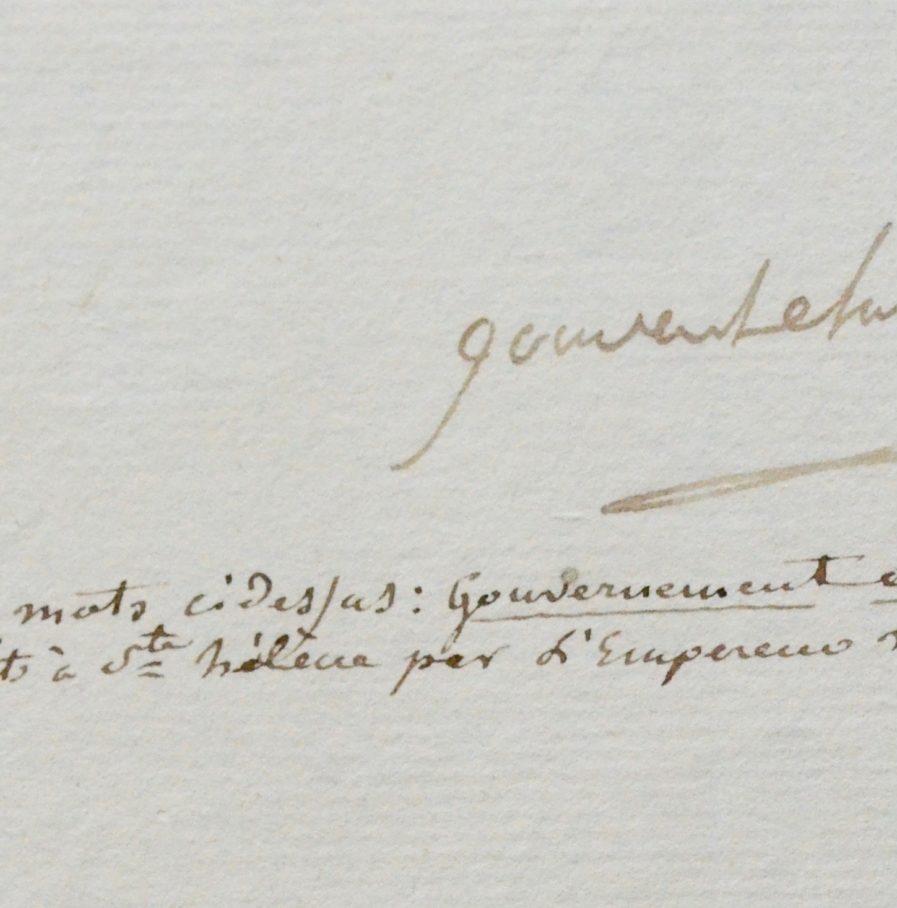 gouvent et
mots cidessus: Gouvernement e
ts à Ste hélène par L'Empereur